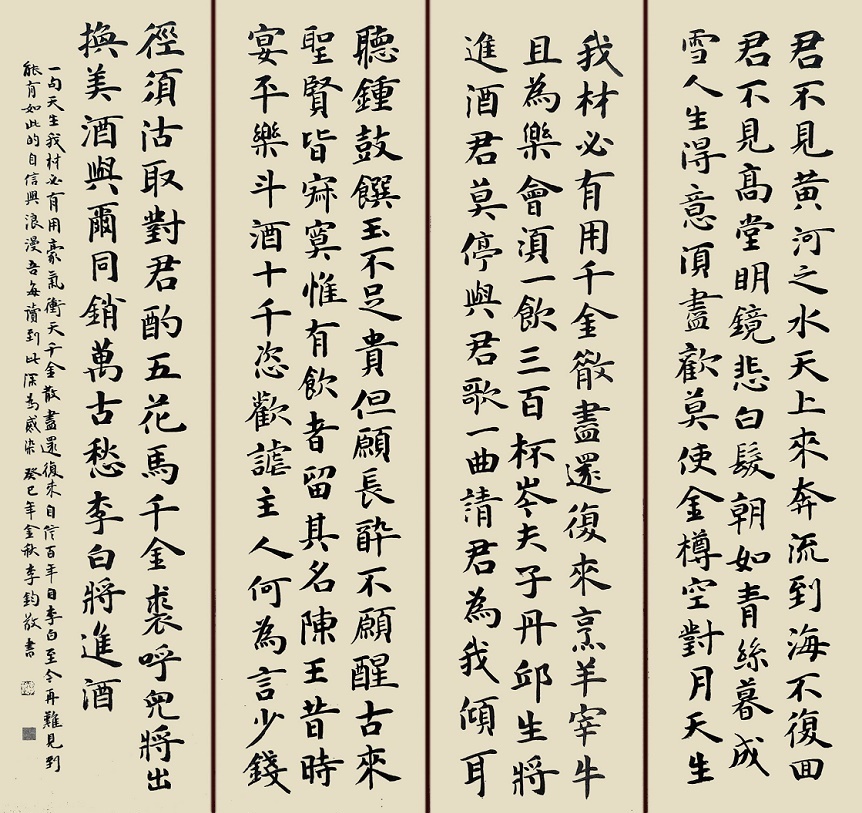 君不見黃河之水天上來奔流到海不復回
君不見高堂明鏡悲白髮朝如青絲暮成
雪人生得意須盡歡莫使金樽空對月天生
我材必有用千金散盡還復來烹羊宰牛
且為樂會須一飲三百杯岑夫子丹邱生將
進酒君莫停與君歌一曲請君為我傾耳
聽鍾鼓饌玉不足貴但願長醉不願醒古來
聖賢皆寂寞惟有飲者留其名陳王昔時
宴平樂斗酒十千恣歡謔主人何為言少錢
徑須沽取對君酌五花馬千金裘呼兒將出
換美酒與爾同銷萬古愁李白將進酒
一句天生我材必有用豪氣衝天千金散盡還復來自信百年目李白至今再難見到
能有如此的自信與浪漫吾每讀到此深為感染癸巳年金秋李鈞敬書